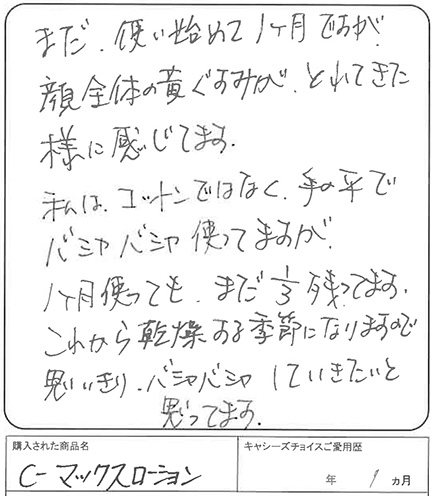 まだ、使い始めて1ヶ月ですが、
顔全体の黄ぐすみが、とれてきた
様に感じてます。
私は、コットンではなく、手の平で
バシャバシャ使ってますが、
1ヶ月使っても、まだ1/3残ってます。
これから乾燥する季節になりますので
思いきり、バシャバシャしていきたいと
思ってます。
購入された商品名
キャシーズチョイスご愛用歴
C-マックスローション
年 1 ヵ月